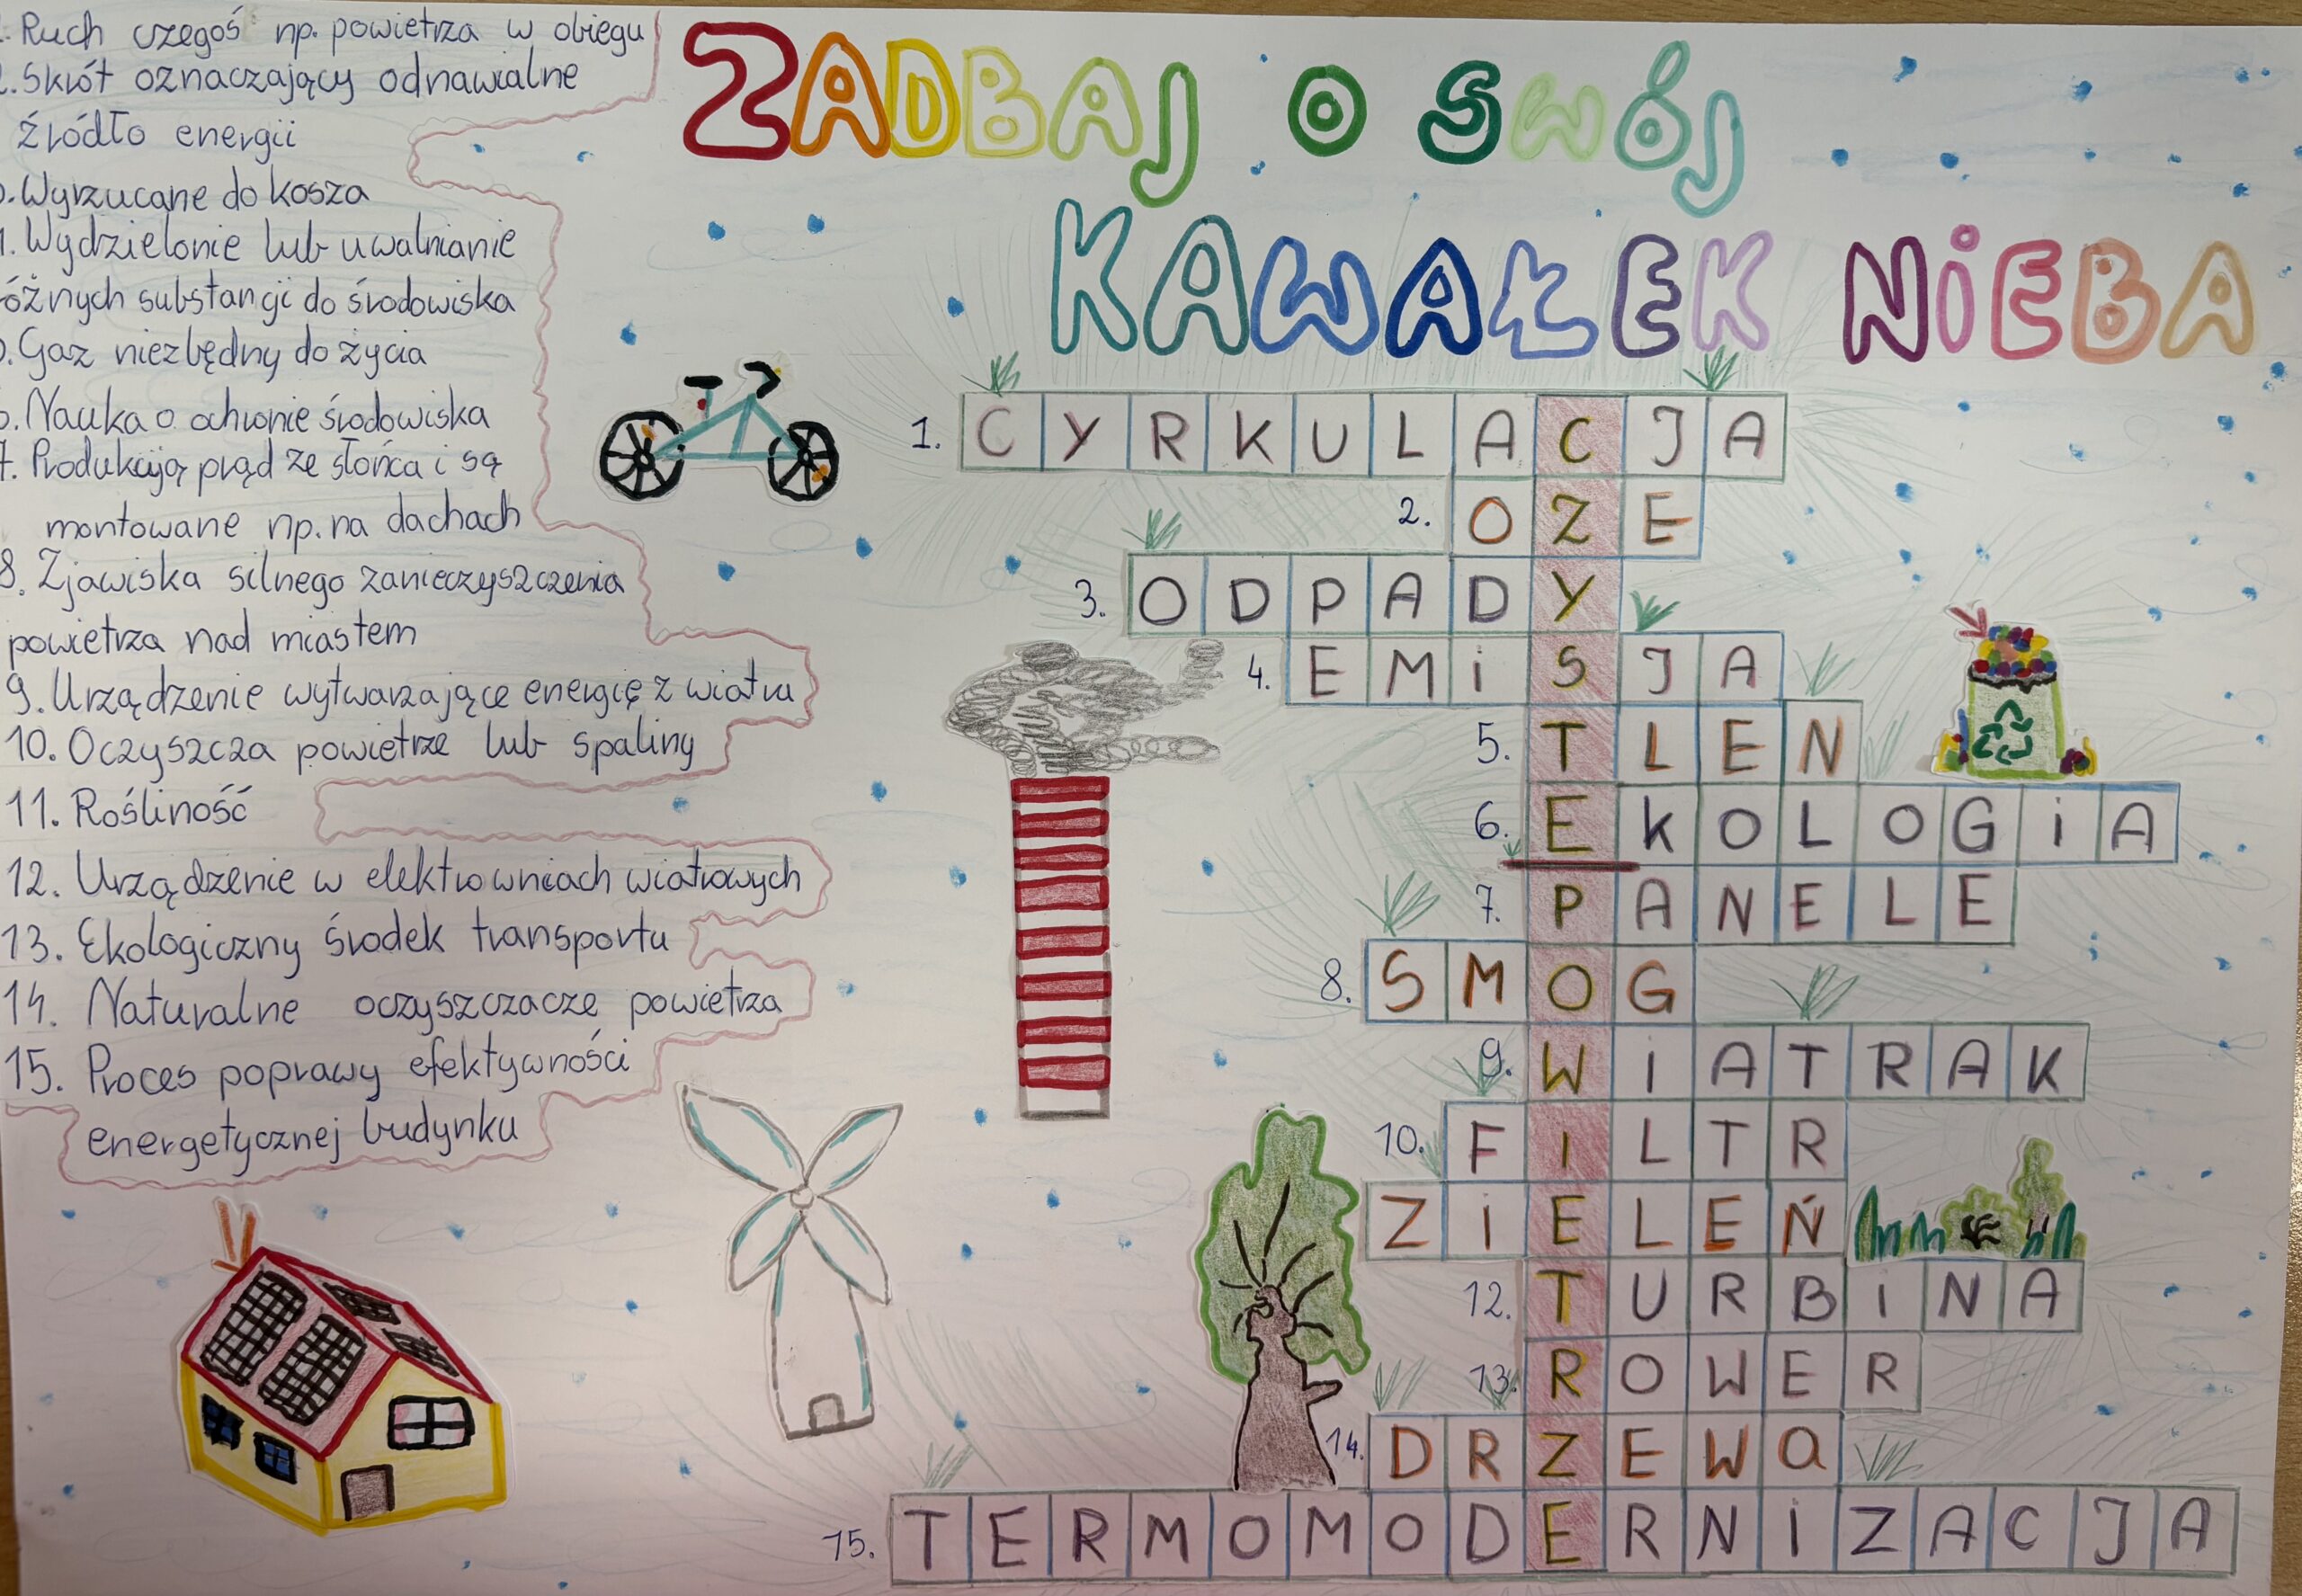 . Ruch czegoś np. powietrza w obiegu
. Skrót oznaczający odnawialne
źródło energii
. Wyrzucane do kosza
. Wydzielonie lub uwalnianie
óżnych substancji do środowiska
. Gaz niezbędny do życia
. Nauka o ochronie środowiska
7. Produkują prąd ze słońca i są
montowane np. na dachach
8. Zjawiska silnego zanieczyszczenia
powietrza nad miastem
9. Urządzenie wytwarzające energię z wiatru
10. Oczyszcza powietrze lub spaliny
11. Rośliność
12. Urządzenie w elektrowniach wiatrowych
13. Ekologiczny środek transportu
14. Naturalne oczyszczacze powietrza
15. Proces poprawy efektywności
energetycznej budynku
ZADBAJ O SWÓJ
KAWAŁEK NIEBA
1. CYRKULACJA
2. OZE
3. ODPADY
4. EMiSJA
5. TLEN
6. EKOLOGiA
7. PANELE
8. SMOG
9. WIATRAK
10. FILTR
ZIELEŃ
12. TURBINA
13. ROWER
14. DRZEWa
15. TERMOMODERNIZACJA